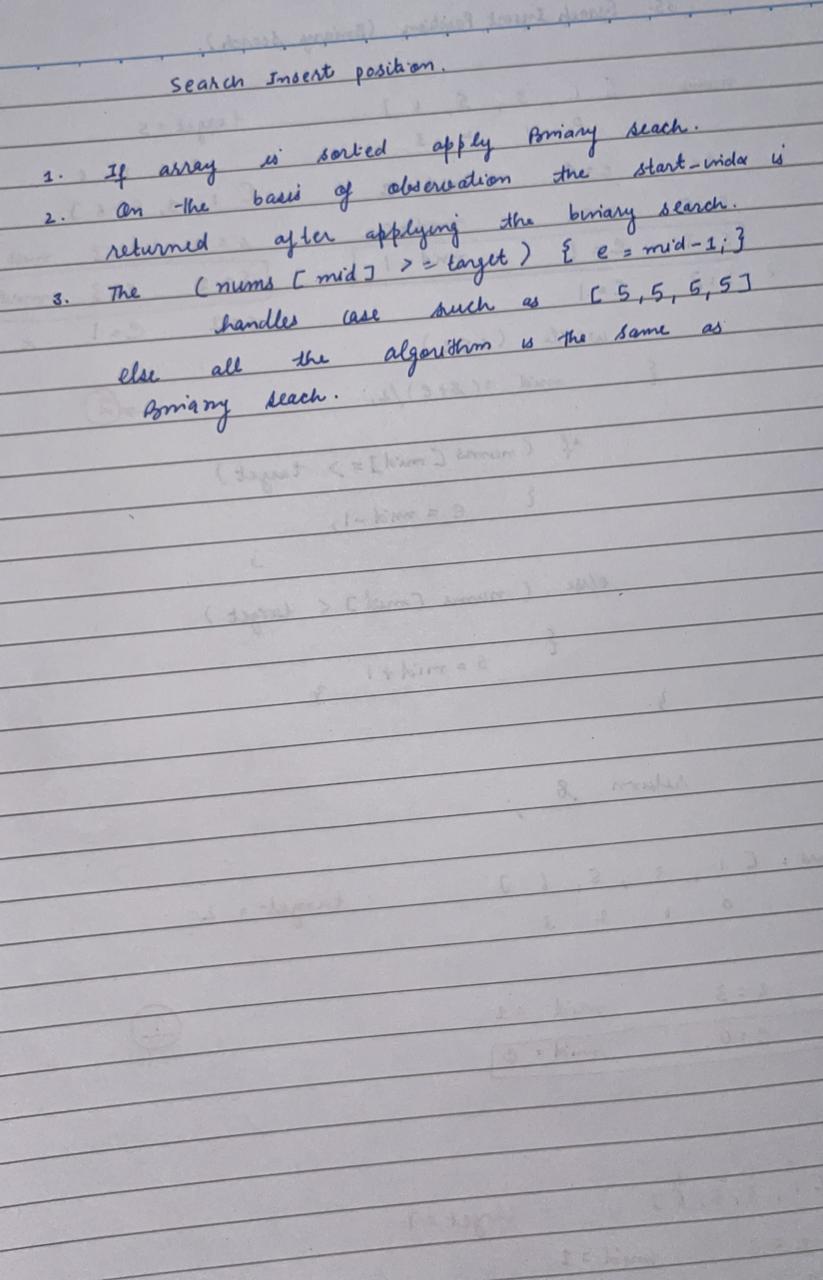 Search Insert position.
1. If array is sorted apply Biniary seach.
2. On the basis of observation the start-index is
returned after applying the biniary search.
3. The (nums [mid] >= target) { e = mid-1; }
handles case such as [5,5,5,5]
else all the algorithm is the same as
Biniary seach.